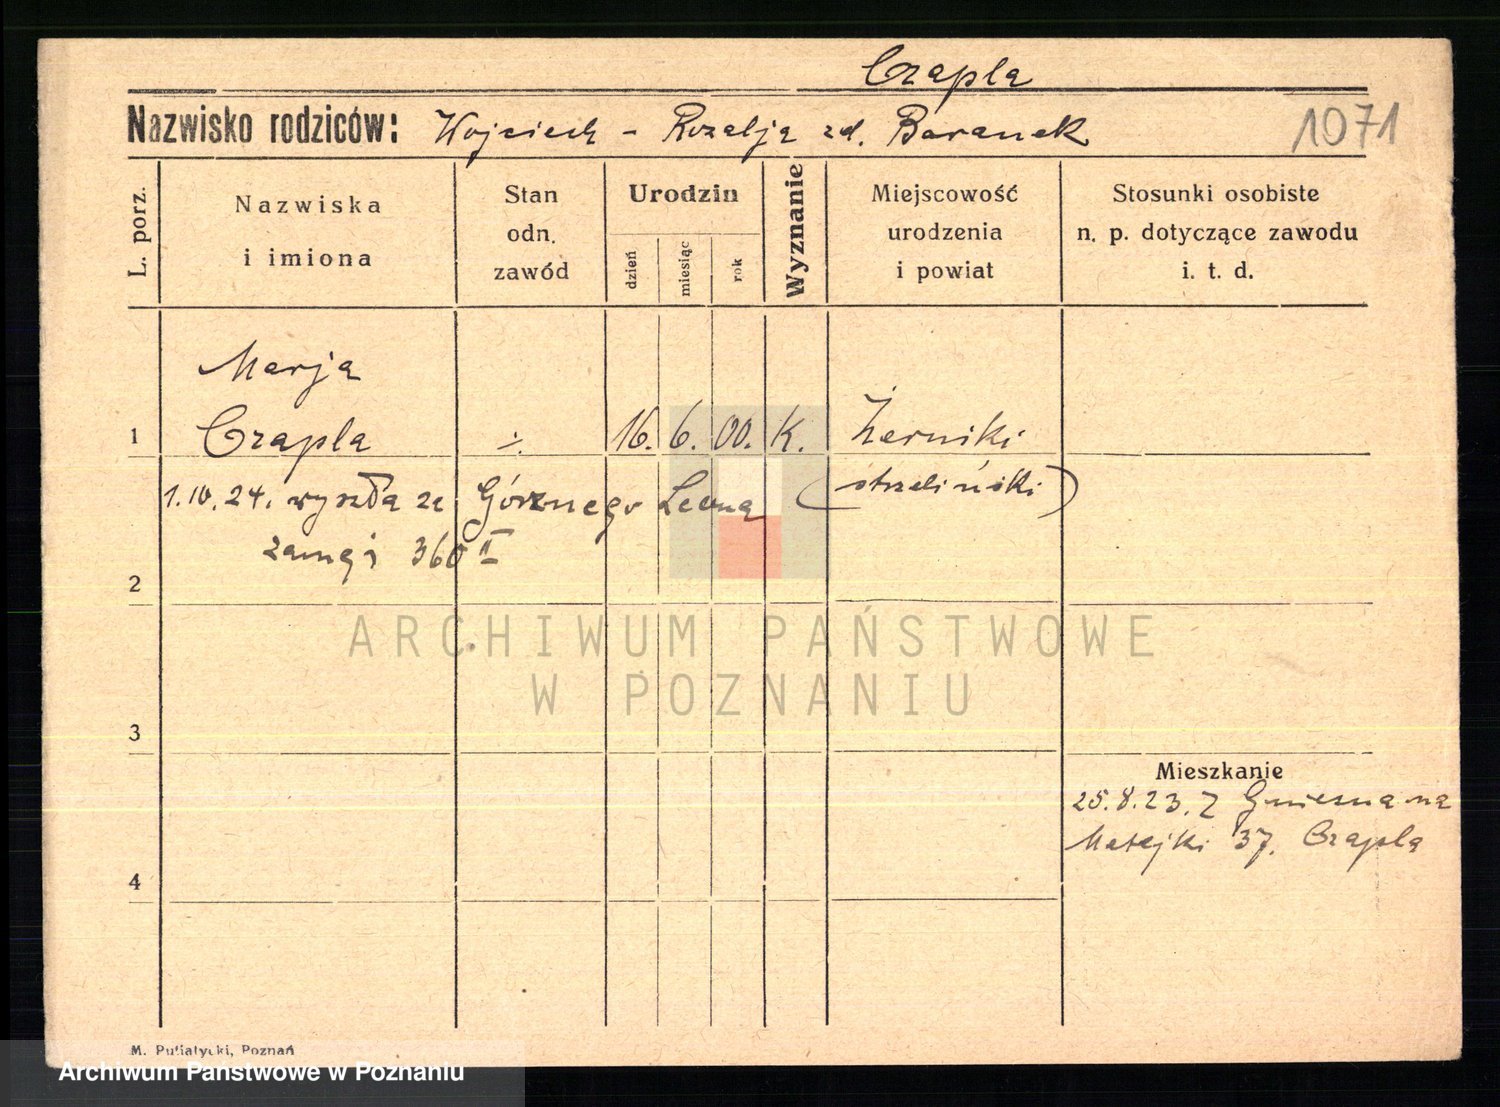 Czapla
Nazwisko rodziców: Wojciech - Rozalja zd. Baranek
1071
L. porz.
Nazwiska
i imiona
Stan
odn.
zawód
Urodzin
dzień
miesiąc
rok
Wyznanie
Miejscowość
urodzenia
i powiat
Stosunki osobiste
n. p. dotyczące zawodu
i. t. d.
Marja
1 Czapla ·/. 16. 6. 00. K. Żerniki
(strzeliński)
1.10.24. wyszła ze Górznego Leona
360 II
2
ARCHIWUM PAŃSTWOWE
W POZNANIU
3
Mieszkanie
25.8.23. Z Gniezna na
Matejki 37. Czapla
4
M. Putiatycki, Poznań
Archiwum Państwowe w Poznaniu